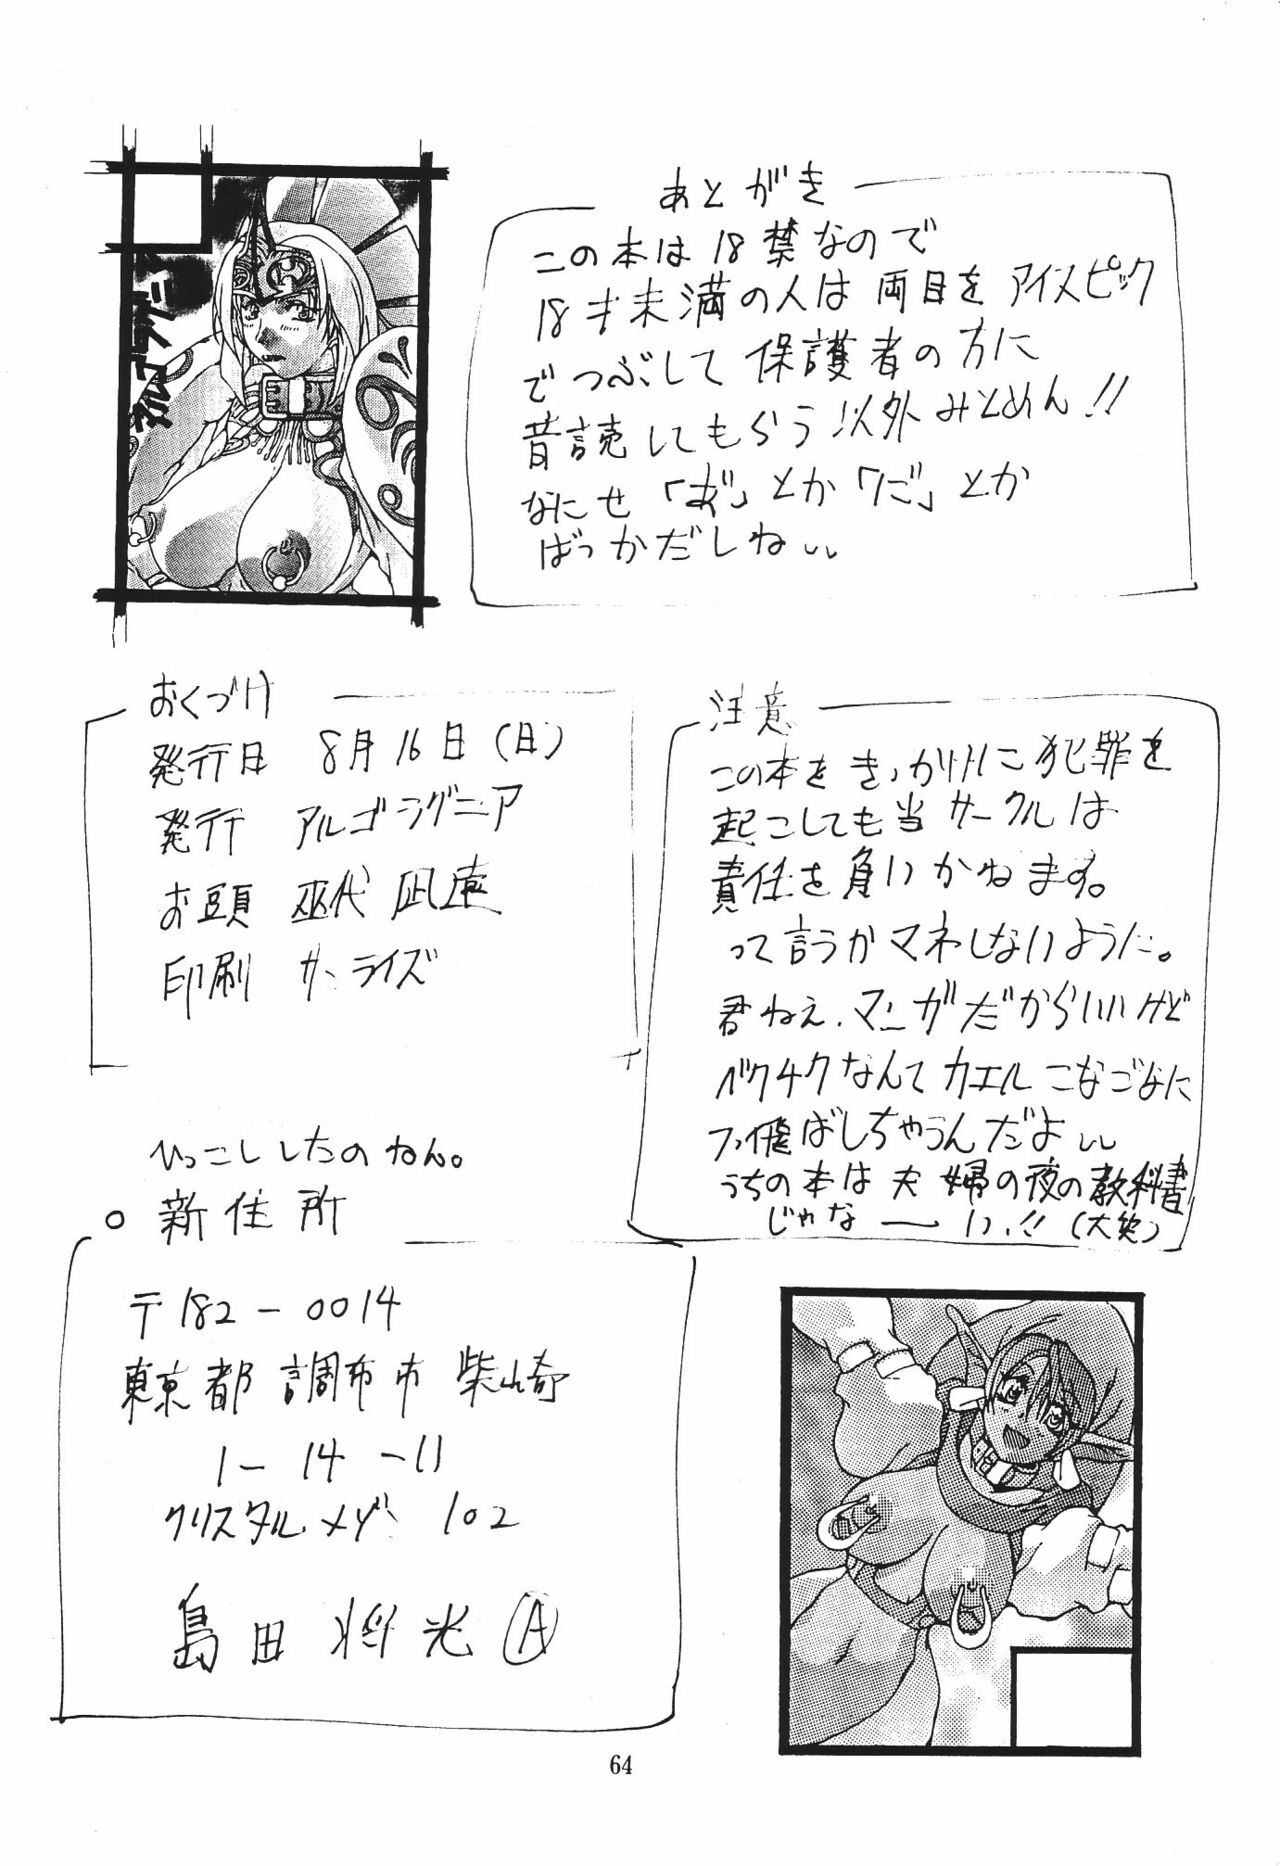 あとがき
この本は18禁なので
18才未満の人は両目をアイスピック
でつぶして保護者の方に
音読してもらう以外みとめん!!
なにせ「あ゛」とか「んご」とか
ばっかだしねぃぃ
おくづけ
発行日 8月16日(日)
発行 アルゴラグニア
お頭 巫代凪遠
印刷 サンライズ
注意
この本をきっかけに犯罪を
起こしても当サークルは
責任を負いかねます。
って言うかマネしないように。
君ねえ、マンガだからいいけど
バクチクなんてカエルこなごなに
フッ飛ばしちゃうんだよぃぃ
うちの本は夫婦の夜の教科書
じゃなーい!!(大笑)
ひっこししたのねん。
○新住所
〒182-0014
東京都調布市柴崎
1-14-11
クリスタルメゾン102
島田将光 A
64